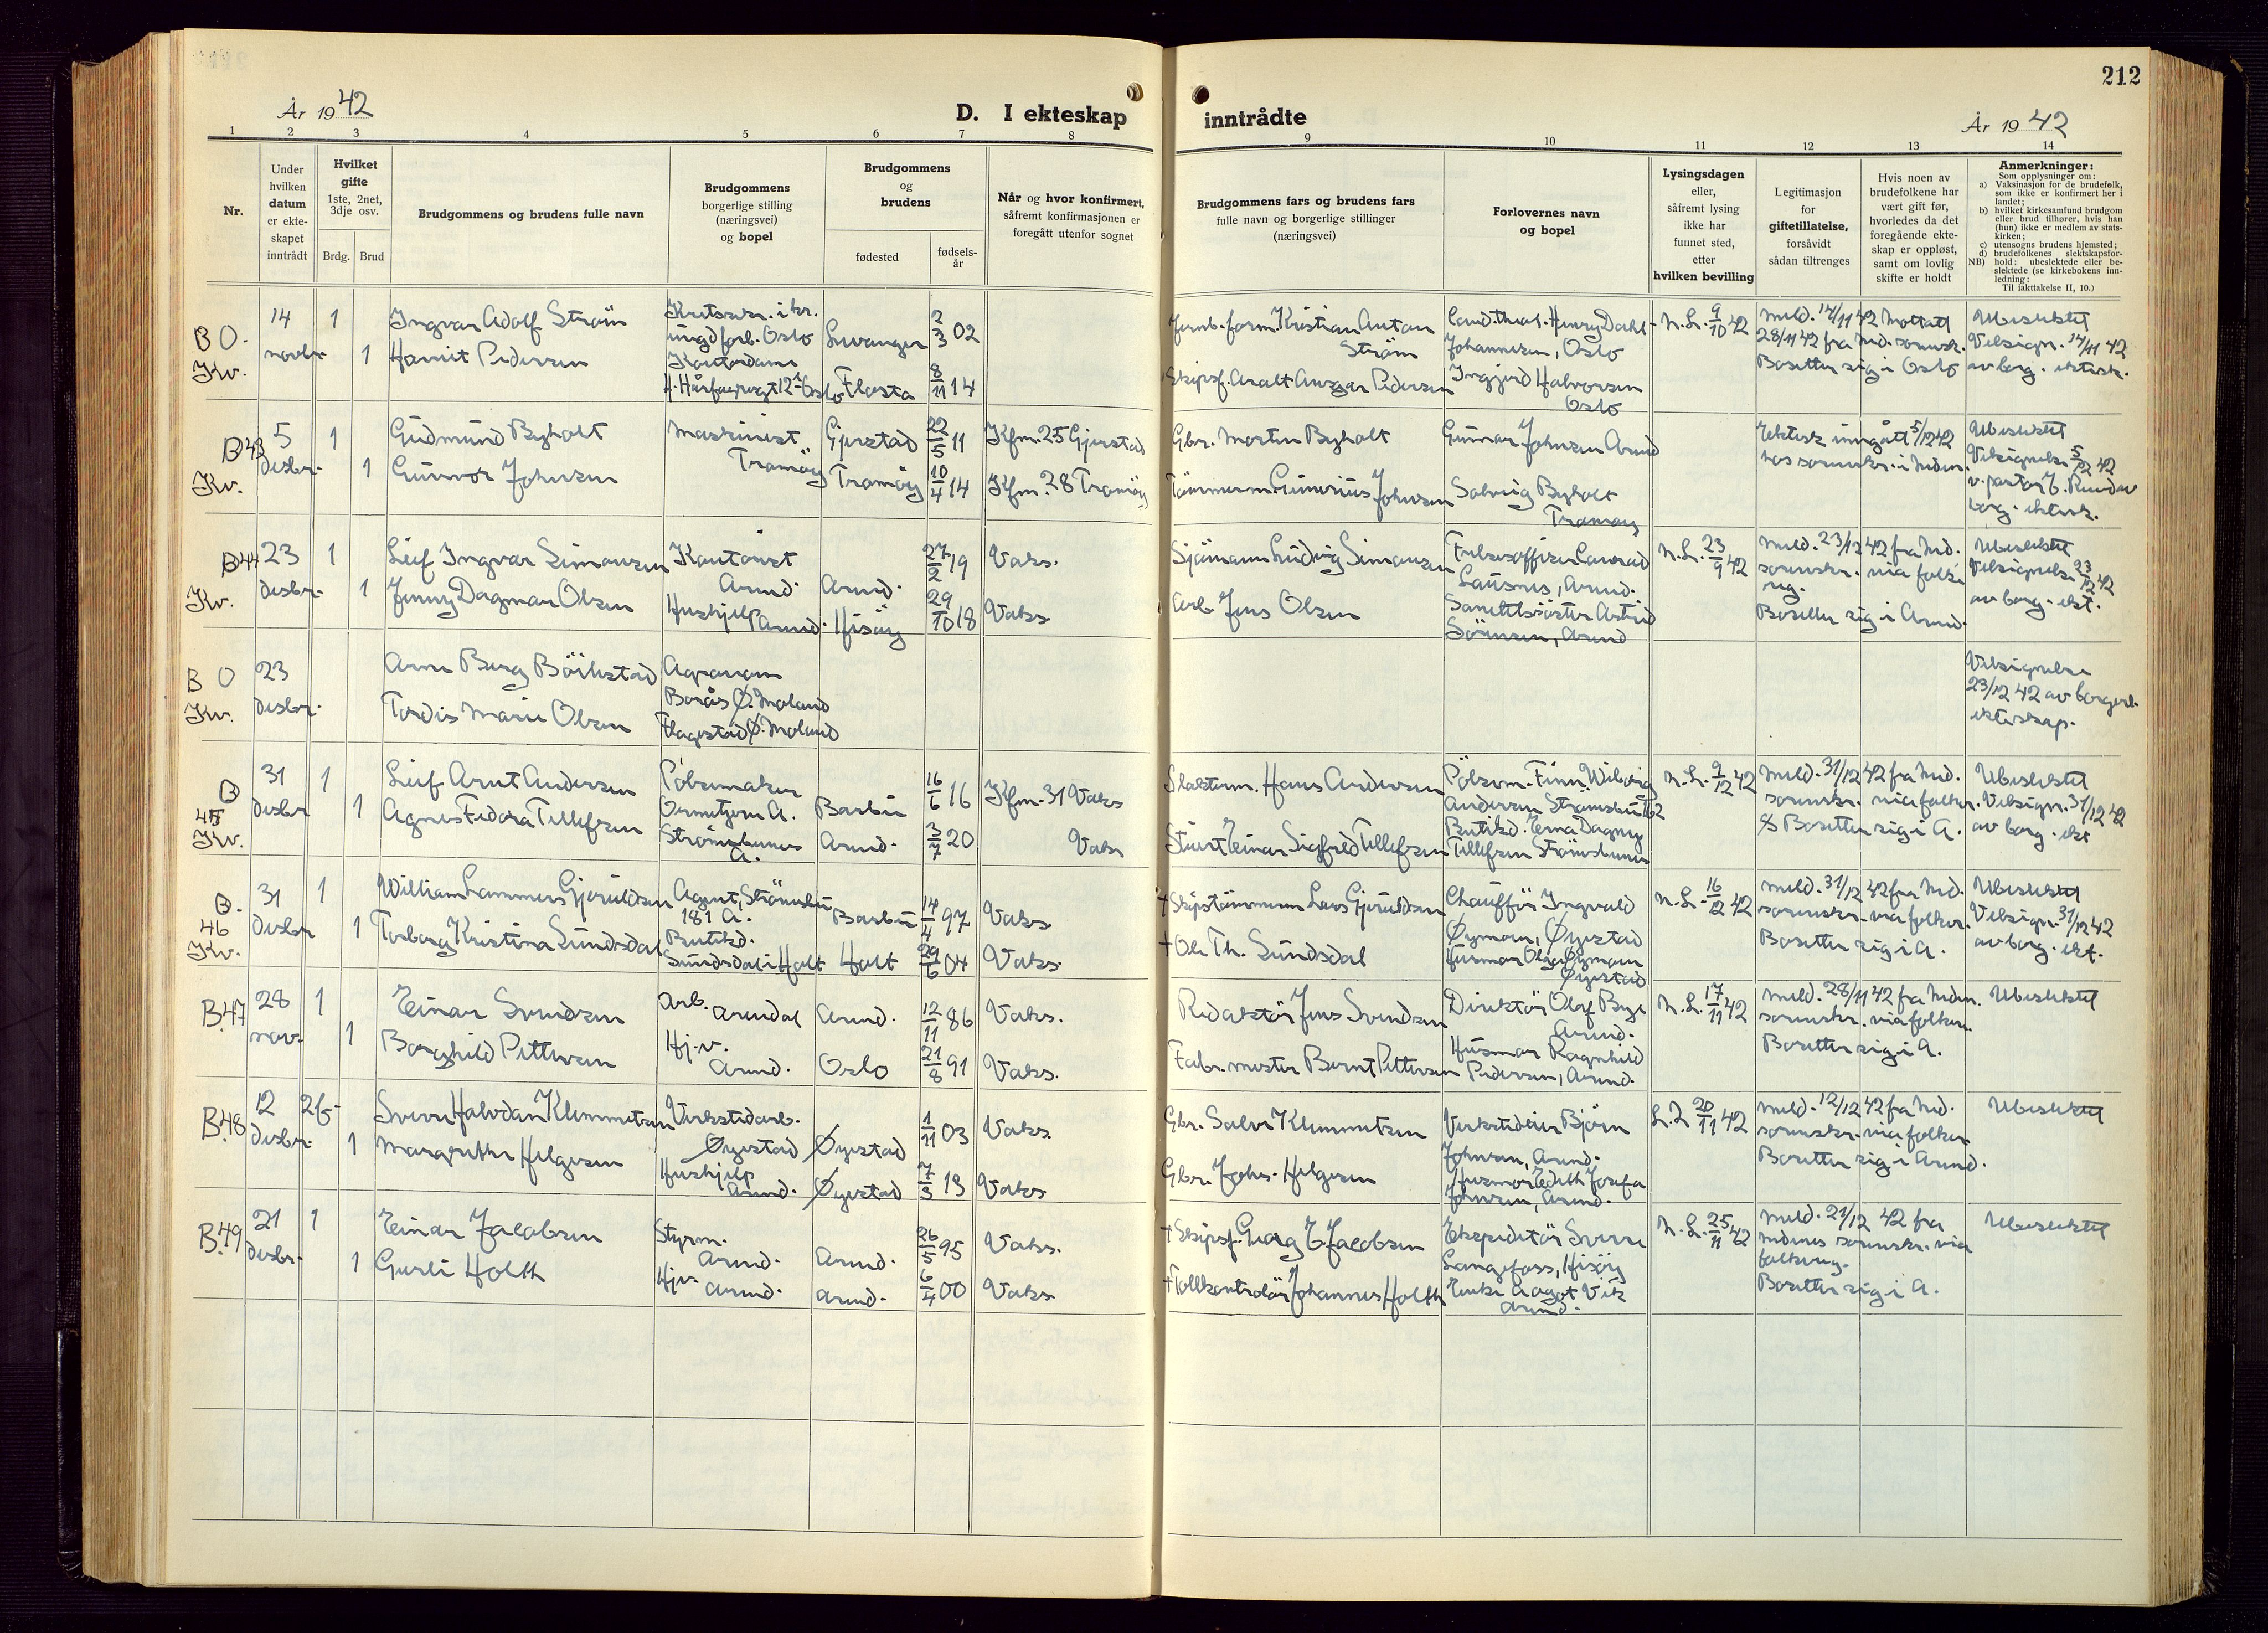 212
År 1942
D. I ekteskap inntrådte
År 1942
1 2 3 4 5 6 7 8 9 10 11 12 13 14
Nr.
Under hvilken datum er ekte-skapet inntrådt
Hvilket gifte 1ste, 2net, 3dje osv.
Brdg. Brud
Brudgommens og brudens fulle navn
Brudgommens borgerlige stilling (næringsvei) og bopel
Brudgommens og brudens
fødested
fødsels-år
Når og hvor konfirmert, såfremt konfirmasjonen er foregått utenfor sognet
Brudgommens fars og brudens fars fulle navn og borgerlige stillinger (næringsvei)
Forlovernes navn og bopel
Lysingsdagen eller, såfremt lysing ikke har funnet sted, etter hvilken bevilling
Legitimasjon for giftetillatelse, forsåvidt sådan tiltrenges
Hvis noen av brudefolkene har vært gift før, hvorledes da det foregående ekte-skap er oppløst, samt om lovlig skifte er holdt
Anmerkninger:
Som opplysninger om:
a) Vaksinasjon for de brudefolk, som ikke er konfirmert her i landet;
b) hvilket kirkesamfund brudgom eller brud tilhører, hvis han (hun) ikke er medlem av stats-kirken;
c) utensogns brudens hjemsted;
d) brudefolkenes slektskapsfor-hold: ubeslektede eller be-slektede (se kirkebokens inn-ledning:
NB)
Til iakttakelse II, 10.)
B 0. Kv.
14 novbr.
1
1
Ingvar Adolf Strøm
Harriet Pedersen
ungd forb. Oslo
Kontordame
Oslo
Levanger
Flosta
2/3 02
8/11 14
Kristian Anton Strøm
Skipsf. Aralt Ansgar Pedersen
Cand. theol. Henry Dahl-
Johannesen, Oslo
Ingjerd Halvorsen
Oslo
N. L. 9/10 42
Meld. 14/11 42 Mottatt
28/11 42 fra Ned. sorenskr.
Bosetter sig i Oslo
Ubeslektet
Velsign. 14/11 42
av borg. ektesk.
B 43 Kv.
5 desbr.
1
1
Gudmund Byholt
Gunvor Johnsen
Maskinist
Tromøy
Gjerstad
Tromøy
22/5 11
10/4 14
Kfm. 25 Gjerstad
Kfm. 28 Tromøy
Gbr. Morten Byholt
Tømmerm. Johnsen
Gunnar Johnsen Arend
Solveig Byholt
Tromøy
Ektesk inngått 5/12 42
hos sorenskr. i Neden.
Ubeslektet
Velsignelse 5/12 42
v. pastor
borg. ektesk.
B 44 Kv.
23 desbr.
1
1
Leif Ingvar Simonsen
Jenny Dagmar Olsen
Kontorist
Arend.
Hushjelp Arend.
Arend.
Hisøy
27/2 19
29/10 18
Vaks.
Vaks.
Sjømann Ludvig Simonsen
Arb. Jens Olsen
Frelsesoffiser Conrad
Lausnes, Arend.
Astrid
Sørensen, Arend
N. L. 23/9 42
Meld. 23/12 42 fra Ned.
sorenskr. via folke
reg.
Bosetter sig i Arend.
Ubeslektet
Velsignelse 23/12 42
av borg. ekt.
B 0 Kv.
23 desbr.
Arne Berg Böilestad
Tordis Marie Olsen
Agronom
Borås Ø. Moland
Flagestad Ø. Moland
Velsignelse
23/12 42 av borgerl.
ekteskap.
B 45 Kv.
31 desbr
1
1
Leif Arnt Andersen
Agnes Fedora Tellefsen
Pølsemaker
A.
Strømsbunes
A.
Barbu
Arend.
16/6 16
3/7 20
Kfm. 31 Vaks
Vaks
Slakterm. Hans Andersen
Stuert Einar Sigfred Tellefsen
Pølsem. Finn Wiborg
Andersen Strømsbu 162
Butikd. Erna Dagny
Tellefsen Strømsbunes
N. L. 9/12 42
Meld. 31/12 42 fra Ned.
sorenskr. via folker.
Bosetter sig i A.
Ubeslektet
Velsign. 31/12 42
av borg. ekt
B. 46 Kv.
31 desbr
1
1
William Lammers Gjeruldsen
Torborg Kristina Sundsdal
Agent, Strømsbu
181 A.
Butikd.
Sundsdal i Holt
Barbu
Holt
14/4 97
29/6 04
Vaks.
Vaks.
+ Skipstømmerm Lars Gjeruldsen
+ Ole Th. Sundsdal
Chauffør Ingvald
Øymoen, Øyestad
Husmor Olga Øymoen
Øyestad
N. L. 16/12 42
Meld. 31/12 42 fra Ned.
sorenskr. via folker.
Bosetter sig i A.
Ubeslektet
Velsign. 31/12 42
av borg. ekt.
B. 47
28 nov.
1
1
Einar Svendsen
Borghild Pettersen
Arb. Arendal
Hj. v.
Arend.
Arend.
Oslo
12/11 86
21/8 91
Vaks.
Vaks.
Redaktør Jens Svendsen
Fabr. mester Bernt Pettersen
Direktør Olaf Bye
Arend.
Husmor Ragnhild
Pedersen, Arend.
N. L. 17/11 42
Meld. 28/11 42 fra Neden.
sorenskr. via folker.
Bosetter sig i A.
Ubeslektet
B. 48
12 desbr.
2 f.
1
Sverre Halvdan Klemmetsen
Margrethe Helgesen
Verkstedarb.
Øyestad
Hushjelp
Arend.
Øyestad
Øyestad
1/11 03
7/3 13
Vaks.
Vaks
Gbr. Salve Klemmetsen
Gbr. Johs. Helgesen
Verkstedeier Bjørn
Johnsen, Arend.
Husmor Edith Josefa
Johnsen, Arend.
20/11 42
Meld. 12/12 42 fra Ned.
sorenskr. via folker.
Bosetter sig i Arend.
Ubeslektet
B. 49
21 desbr.
1
1
Einar Jacobsen
Gurli Holth
Styrm.
Arend.
Hjv. Arend.
Arend.
Arend.
26/5 95
6/4 00
Vaks.
Vaks.
+ Skipsf. Georg E. Jacobsen
+ Tollkontrolør Johannes Holth
Ekspeditør Sverre
Langfoss, Hisøy
Enke Aagot Vik
Arend.
N. L. 25/11 42
Meld. 21/12 42 fra
Nedenes sorenskr. via
folkereg.
Bosetter sig i A.
Ubeslektet